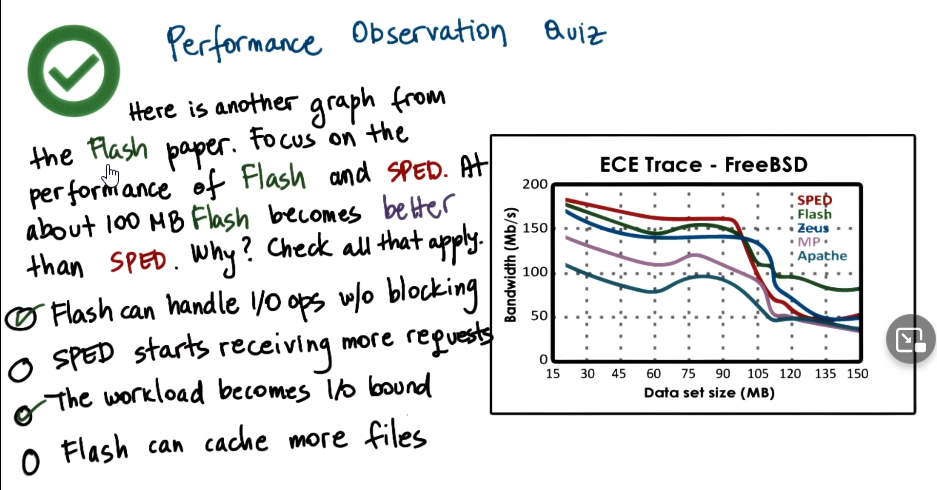 Performance Observation Quiz
Here is another graph from
the Flash paper. Focus on the
performance of Flash and SPED. At
about 100 MB Flash becomes better
than SPED. Why? Check all that apply.
Flash can handle I/O ops w/o blocking
SPED starts receiving more requests
The workload becomes I/O bound
Flash can cache more files
ECE Trace - FreeBSD
Bandwidth (Mb/s)
200
150
100
50
0
SPED
Flash
Zeus
MP
Apache
15 30 45 60 75 90 105 120 135 150
Data set size (MB)